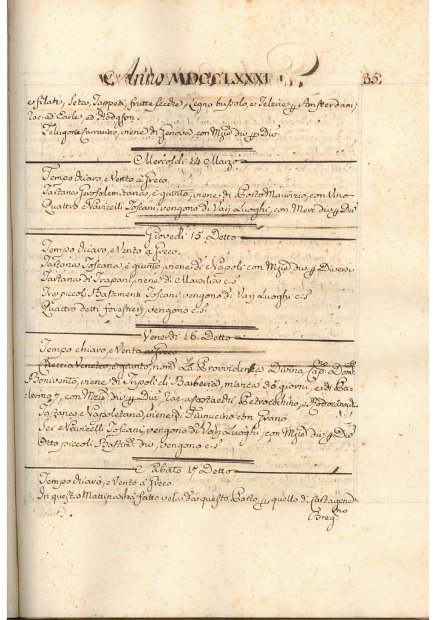 Anno MDCCLXXXI 35
e filati, Seta, Tappeti, Legno bussolo, e Telerie p Amsterdam
Rac. ad Earle, ed Hodgson.
Feluga Carrarino, viene di Genova, con Mzie div. p Div.
Mercoldì 14 Marzo
Tempo chiaro, e Vento a Greco.
Tartana Jerosolemitana è giunto, viene di Porto Maurizio, con Vino
Quattro Navicelli Toscani, vengono di Varj Luoghi, con Merci div. p Div.
Giovedì 15 Detto
Tempo chiaro, e Vento a Greco.
Tartana Toscana è giunto, viene di Napoli con Mzie div. p Diversi
Tartana di Trapani, viene di Marsilia c. s.
Tre piccoli Bastimenti Toscani, vengono di Varj Luoghi c. s.
Quattro detti forestieri, vengono c. s.
Venerdì 16 Detto
Tempo chiaro, e Vento a Greco
Checcia Veneto, è giunto, nom.a La Provvidenza Divina Cap. Dom.
Bonivento, viene di Tripoli di Barberia, manca 36 giorni, e di Pa
lermo, con Mzie div. p Div. Petrocochino, e Rodocanachi
Tartana Napoletana, viene di Fiumicino con Grano.
Sei Navicelli Toscani, vengono di Varj Luoghi con Mzie div. p Div
Otto piccoli Bastim. div., vengono c. s.
Sabato 17 Detto
Tempo chiaro, e Vento a Greco
In questa Mattina ha fatto vela da questo Porto p quello di Cartagena
Breg.